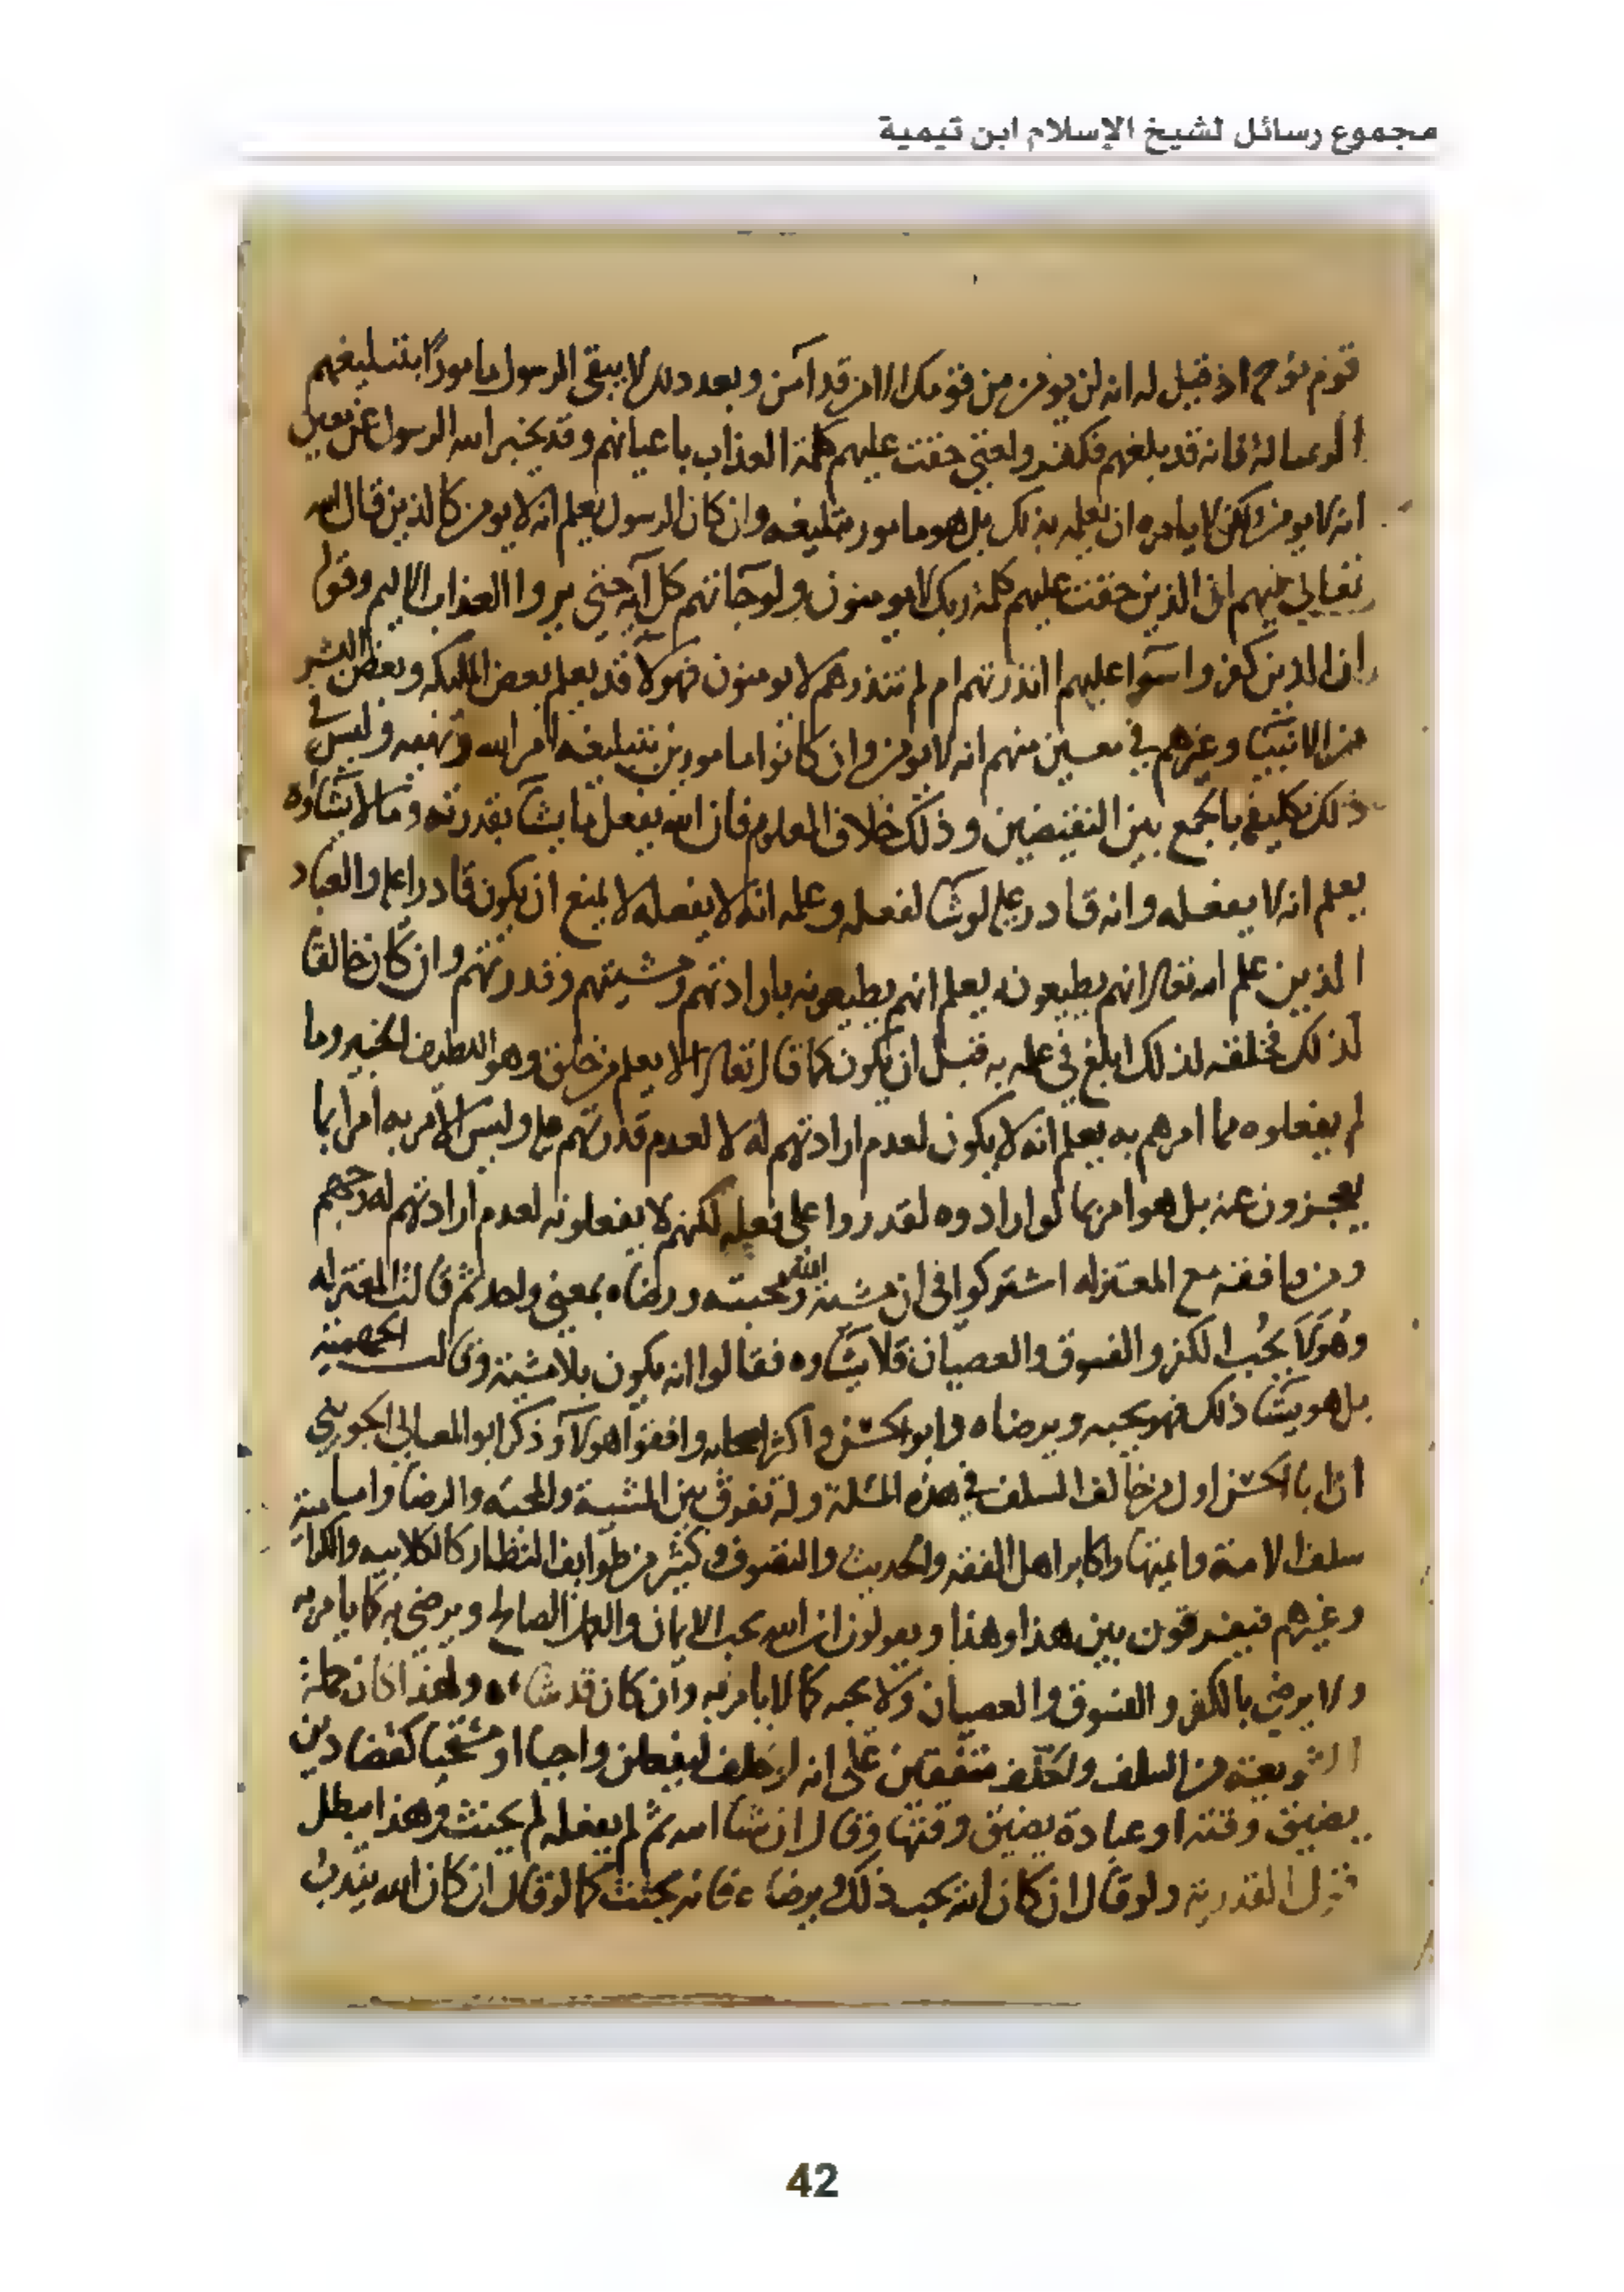 مجموع رسائل لشيخ الإسلام ابن تيمية
قوم نوح اذ قيل له انه لن يومن من قومك الا من قد آمن وبعد ذلك لا يبقى الرسول مامورًا بتبليغهم
الرسالة فانه قد بلغهم فكفروا حقت عليهم كلمة العذاب باعيانهم وقد يخبر الله الرسول عن معين
انه لا يومن لكن لا يامره ان يعلمه بذلك بل هو مامور بتبليغه وان كان الرسول يعلم انه لا يومن كالذين قال الله
تعالى فيهم ان الذين حقت عليهم كلمة ربك لا يومنون ولو جاتهم كل آية حتى يروا العذاب الاليم وقوله
ان الذين كفروا سوآ عليهم اانذرتهم ام لم تنذرهم لا يومنون فهولا قد يعلم بعض المليكه وبعض البشر
من الانبيا وغيرهم في معين منهم انه لا يومن وان كانوا مامورين بتبليغه امر الله ونهيه وليس في
ذلك تكليف بالجمع بين النقيضين وذلك خلاف المعلوم فان الله يفعل ما يشآ بقدرته وما لا يشاؤه
يعلم انه لا يفعله وانه قادر عليه لو شا لفعله وعلمه انه لا يفعله لا يمنع ان يكون قادرا عليه والعباد
الذين علم الله تعالى انهم يطيعونه يعلم انهم يطيعونه بارادتهم ومشيتهم وقدرتهم وان كان خالقا
لذلك فخلقه لذلك ابلغ في علمه به قبل ان يكون كما قال تعالى الا يعلم من خلق وهو اللطيف الخبير وما
لم يفعلوه مما امرهم به يعلم انه لا يكون لعدم ارادتهم له لا لعدم قدرتهم عليه وليس الامر به امرا بما
يعجزون عنه بل هو امر بما لو ارادوه لقدروا على فعله لكنهم لا يفعلونه لعدم ارادتهم له وجهم
ومن وافقه مع المعتزله اشتركوا في ان مشية الله ومحبته ورضاه بمعنى واحد ثم قالت المعتزله
وهو لا يحب الكفر والفسوق والعصيان فلا يشاوه فقالوا انه يكون بلا مشية وقالت الجهمية
بل هو يشا ذلك فهو يحبه ويرضاه وابو الحسن واكثر اصحابه وافقوا هولآ وذكر ابو المعالي الجويني
ان ابا الحسن اول من خالف السلف في هذه المسلة ولم يفرق بين المشية والمحبه والرضا واما
سلف الامة وايمتها واكابر اهل الفقه والحديث والتصوف وكثير من طوايف النظار كالكلابيه والكرامية
وغيرهم فيفرقون بين هذا وهذا ويقولون ان الله يحب الايمان والعمل الصالح ويرضى به كما يامر به
ولا يرضى بالكفر والفسوق والعصيان ولا يحبه كما لا يامر به وان كان قد شاءه ولهذا كان حملة
الشريعة من السلف والخلف متفقين على انه لو حلف ليفعلن واجبا او مستحبا كقضا دين
يضيق وقته او عبادة يضيق وقتها وقال ان شا الله ثم لم يفعله لم يحنث وهذا يبطل
قول القدرية ولو قال ان كان الله يحب ذلك ويرضاه فانه يحنث كما لو قال ان كان الله يندب
42